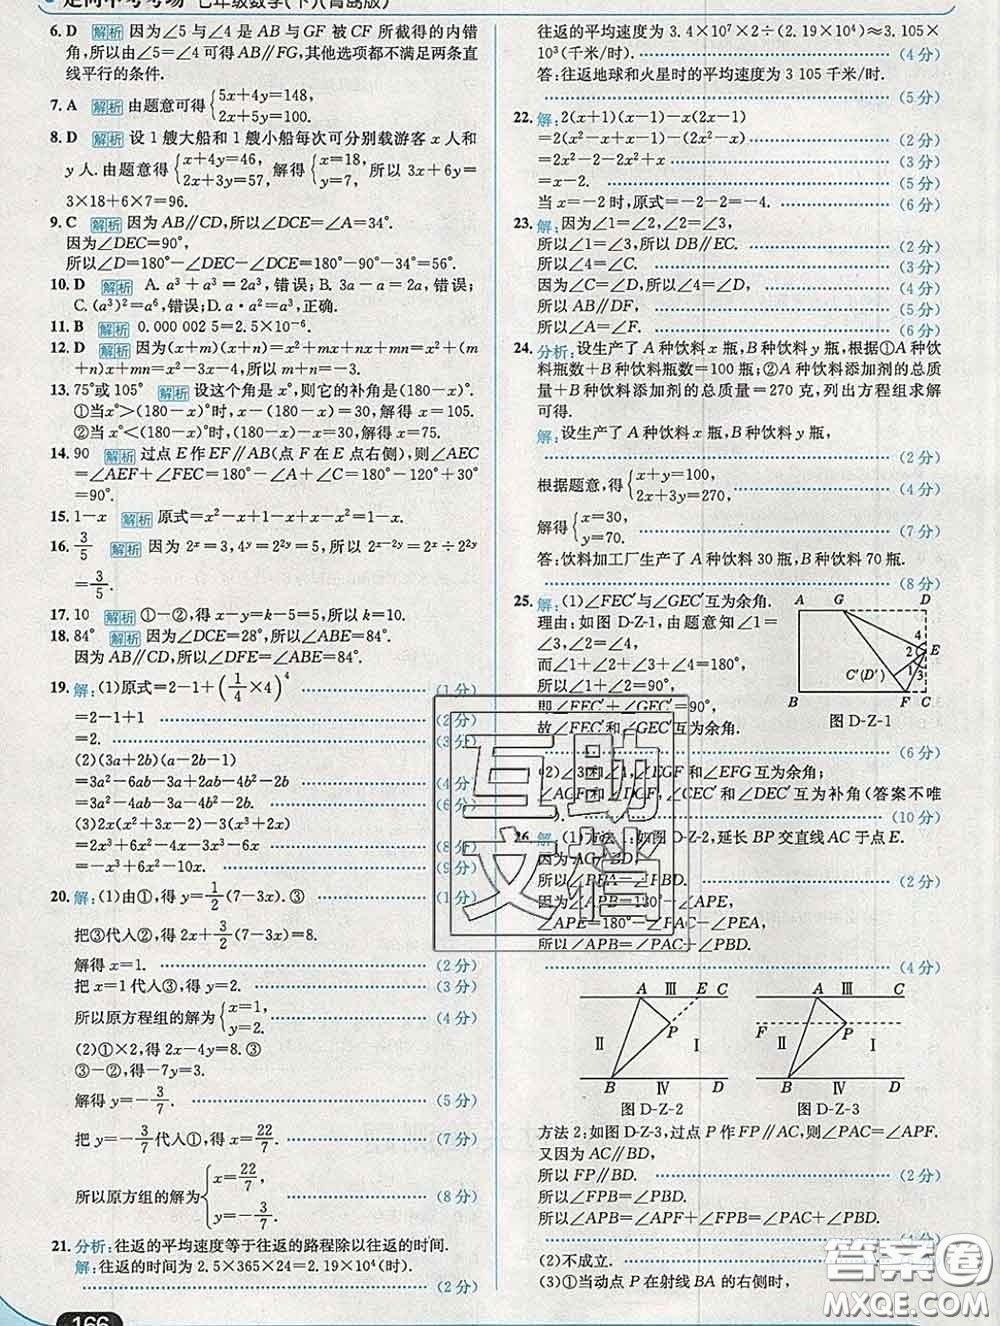 走向中考考场 七年级数学(下)(青岛版)
6. D 解析 因为∠5与∠4是AB与GF被CF所截得的内错
角,所以由∠5=∠4可得AB∥FG,其他选项都不满足两条直
线平行的条件.
7. A 解析 由题意可得{5x+4y=148,
2x+5y=100.
8. D 解析 设1艘大船和1艘小船每次可分别载游客x人和
y人.由题意得{x+4y=46, 2x+3y=57, 解得{x=18, y=7, 所以3x+6y=
3×18+6×7=96.
9. C 解析 因为AB∥CD,所以∠DCE=∠A=34°.
因为∠DEC=90°,
所以∠D=180°-∠DEC-∠DCE=180°-90°-34°=56°.
10. D 解析 A. a³+a³=2a³,错误;B. 3a-a=2a,错误;
C. (a³)²=a⁶,错误;D. a·a²=a³,正确.
11. B 解析 0.000 002 5=2.5×10⁻⁶.
12. D 解析 因为(x+m)(x+n)=x²+mx+nx+mn=x²+(m+
n)x+mn=x²-3x-4,所以m+n=-3.
13. 75°或105° 解析 设这个角是x°,则它的补角是(180-x)°.
①当x°>(180-x)°时,x-(180-x)=30,解得x=105.
②当x°<(180-x)°时,(180-x)-x=30,解得x=75.
14. 90 解析 过点E作EF∥AB(点F在E点右侧),则∠AEC
=∠AEF+∠FEC=180°-∠A+∠C=180°-120°+30°
=90°.
15. 1-x 解析 原式=x²-x+1-x+x-x²=1-x.
16. 3/5 解析 因为2ˣ=3,4ʸ=2²ʸ=5,所以2ˣ⁻²ʸ=2ˣ÷2²ʸ
=3/5.
17. 10 解析 ①-②,得x-y=k-5=5,所以k=10.
18. 84° 解析 因为∠DCE=28°,所以∠ABE=84°.
因为AB∥CD,所以∠DFE=∠ABE=84°.
19. 解:(1)原式=2-1+(1/4×4)⁴ (1分)
=2-1+1 (2分)
=2. (3分)
(2)(3a+2b)(a-2b-1)
=3a²-6ab-3a+2ab-4b²-2b (4分)
=3a²-4ab-3a-4b²-2b. (6分)
(3)2x(x²+3x-2)-3(x³+2x)
=2x³+6x²-4x-3x³-6x (8分)
=-x³+6x²-10x. (9分)
20. 解:(1)由①,得y=1/2(7-3x).③ (1分)
把③代入②,得2x+3/2(7-3x)=8.
解得x=1. (2分)
把x=1代入③,得y=2. (3分)
所以原方程组的解为{x=1, y=2. (4分)
(2)①×2,得2x-4y=8.③
③-②,得-7y=3.
解得y=-3/7. (5分)
把y=-3/7代入①,得x=22/7. (7分)
所以原方程组的解为{x=22/7, y=-3/7. (8分)
21. 分析:往返的平均速度等于往返的路程除以往返的时间.
解:往返的时间为2.5×365×24=2.19×10⁴(时).
(2分)
166
往返的平均速度为3.4×10⁷×2÷(2.19×10⁴)≈3.105×
10³(千米/时). (4分)
答:往返地球和火星时的平均速度为3 105千米/时.
(5分)
22. 解:2(x+1)(x-1)-x(2x-1)
=2(x²-x+x-1)-(2x²-x) (2分)
=2x²-2-2x²+x (3分)
=x-2. (5分)
当x=-2时,原式=-2-2=-4. (6分)
23. 解:因为∠1=∠2,∠2=∠3,
所以∠1=∠3,所以DB∥EC. (2分)
所以∠4=∠C. (3分)
因为∠C=∠D,所以∠4=∠D, (4分)
所以AB∥DF, (5分)
所以∠A=∠F. (6分)
24. 分析:设生产了A种饮料x瓶,B种饮料y瓶,根据①A种饮
料瓶数+B种饮料瓶数=100瓶;②A种饮料添加剂的总质
量+B种饮料添加剂的总质量=270克,列出方程组求解
可得.
解:设生产了A种饮料x瓶,B种饮料y瓶,
(2分)
根据题意,得{x+y=100, 2x+3y=270, (4分)
解得{x=30, y=70. (7分)
答:饮料加工厂生产了A种饮料30瓶,B种饮料70瓶.
(8分)
25. 解:(1)∠FEC′与∠GEC′互为余角.
理由:如图D-Z-1,由题意知∠1=
∠3,∠2=∠4.
而∠1+∠2+∠3+∠4=180°,
所以∠1+∠2=90°,
即∠FEC′+∠GEC′=90°,
故∠FEC′和∠GEC′互为余角.
A G D 4 2 E 1 3 C′(D′) B F C
图D-Z-1
(6分)
(2)∠3和∠1,∠EGF和∠EFG互为余角;
∠AGF和∠DGF,∠CEC′和∠DEC′互为补角(答案不唯
一). (10分)
26. 解:(1)方法1:如图D-Z-2,延长BP交直线AC于点E.
因为AC∥BD,
所以∠PEA=∠PBD. (2分)
因为∠APB=180°-∠APE,
∠APE=180°-∠PAC-∠PEA,
所以∠APB=∠PAC+∠PBD.
(4分)
A Ⅲ E C Ⅱ P Ⅰ B Ⅳ D
图D-Z-2
A Ⅲ C F P Ⅱ Ⅰ B Ⅳ D
图D-Z-3
方法2:如图D-Z-3,过点P作FP∥AC,则∠PAC=∠APF.
又因为AC∥BD, (2分)
所以FP∥BD.
所以∠FPB=∠PBD.
所以∠APB=∠APF+∠FPB=∠PAC+∠PBD.
(4分)
(2)不成立.
(3)①当动点P在射线BA的右侧时,
互助文档
答案圈
MXQE.COM